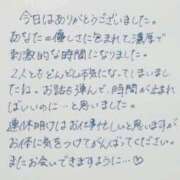 今日はありがとうございました。
あなたの優しさに包まれて濃厚で
刺激的な時間になりました。
2人ともどんどん本気になってしまいまし
たね。お話も弾んで、時間が止まれ
ばいいのに…と思いました。
連休明けはお仕事忙しいと思いますが
お体に気をつけてがんばってください。
またお会いできますように…♡